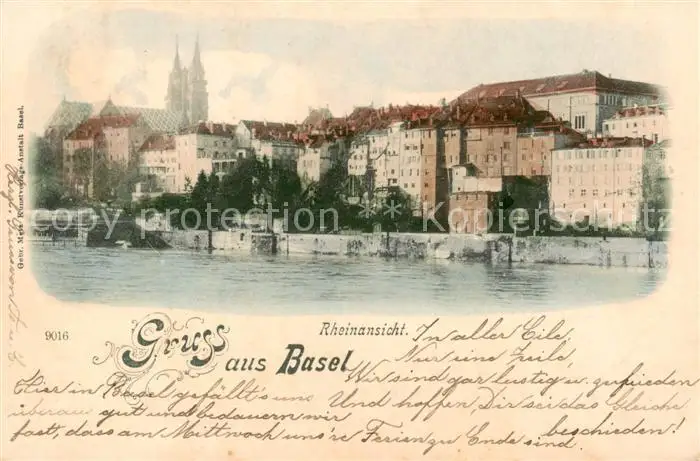 Gebr. Metz Kunstverlags-Anstalt Basel.
copyright picclick postcards
9016
Rheinansicht.
Gruss aus Basel
In aller Eile
Nur eine Zeile,
Wir sind gar lustig u. zufrieden
Und hoffen, Dir sei das Gleiche
beschieden!
Hier in Basel gefällt's uns
überaus gut und bedauern wir
fast, dass am Mittwoch uns're Ferien zu Ende sind.